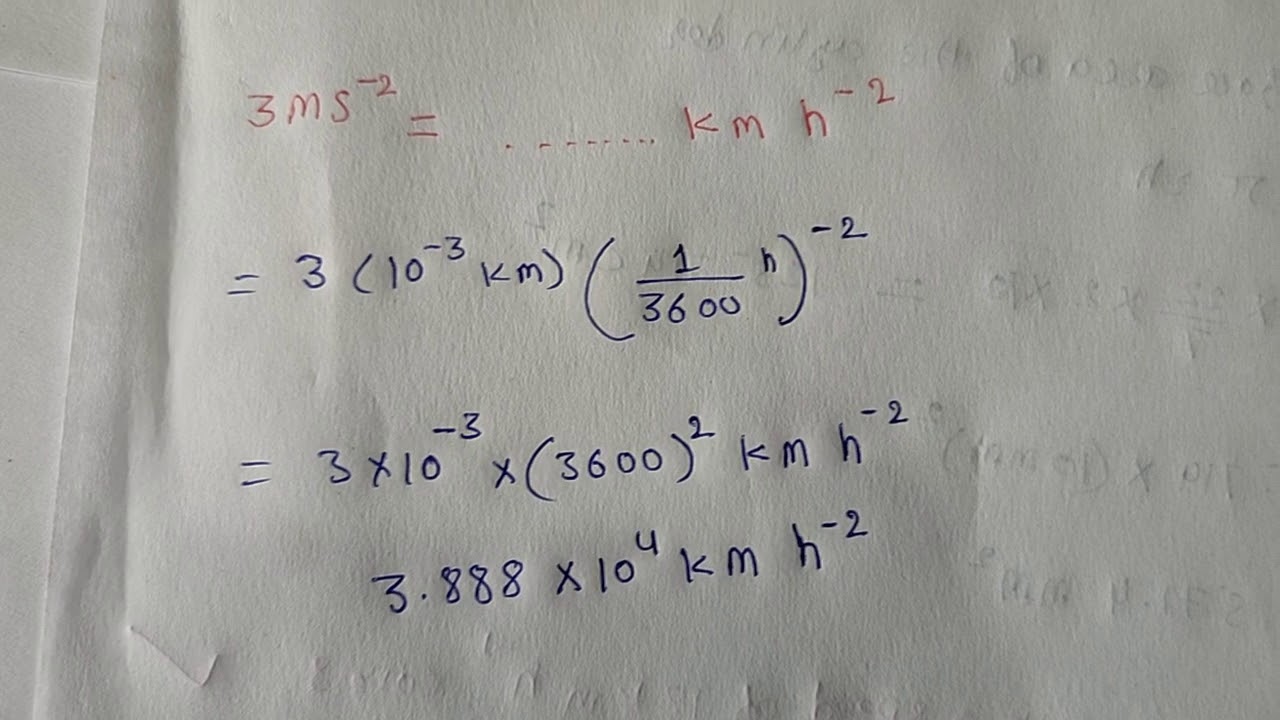 3 m s⁻² = ........ km h⁻²
= 3 (10⁻³ km) (1/3600 h)⁻²
= 3 × 10⁻³ × (3600)² km h⁻²
3.888 × 10⁴ km h⁻²